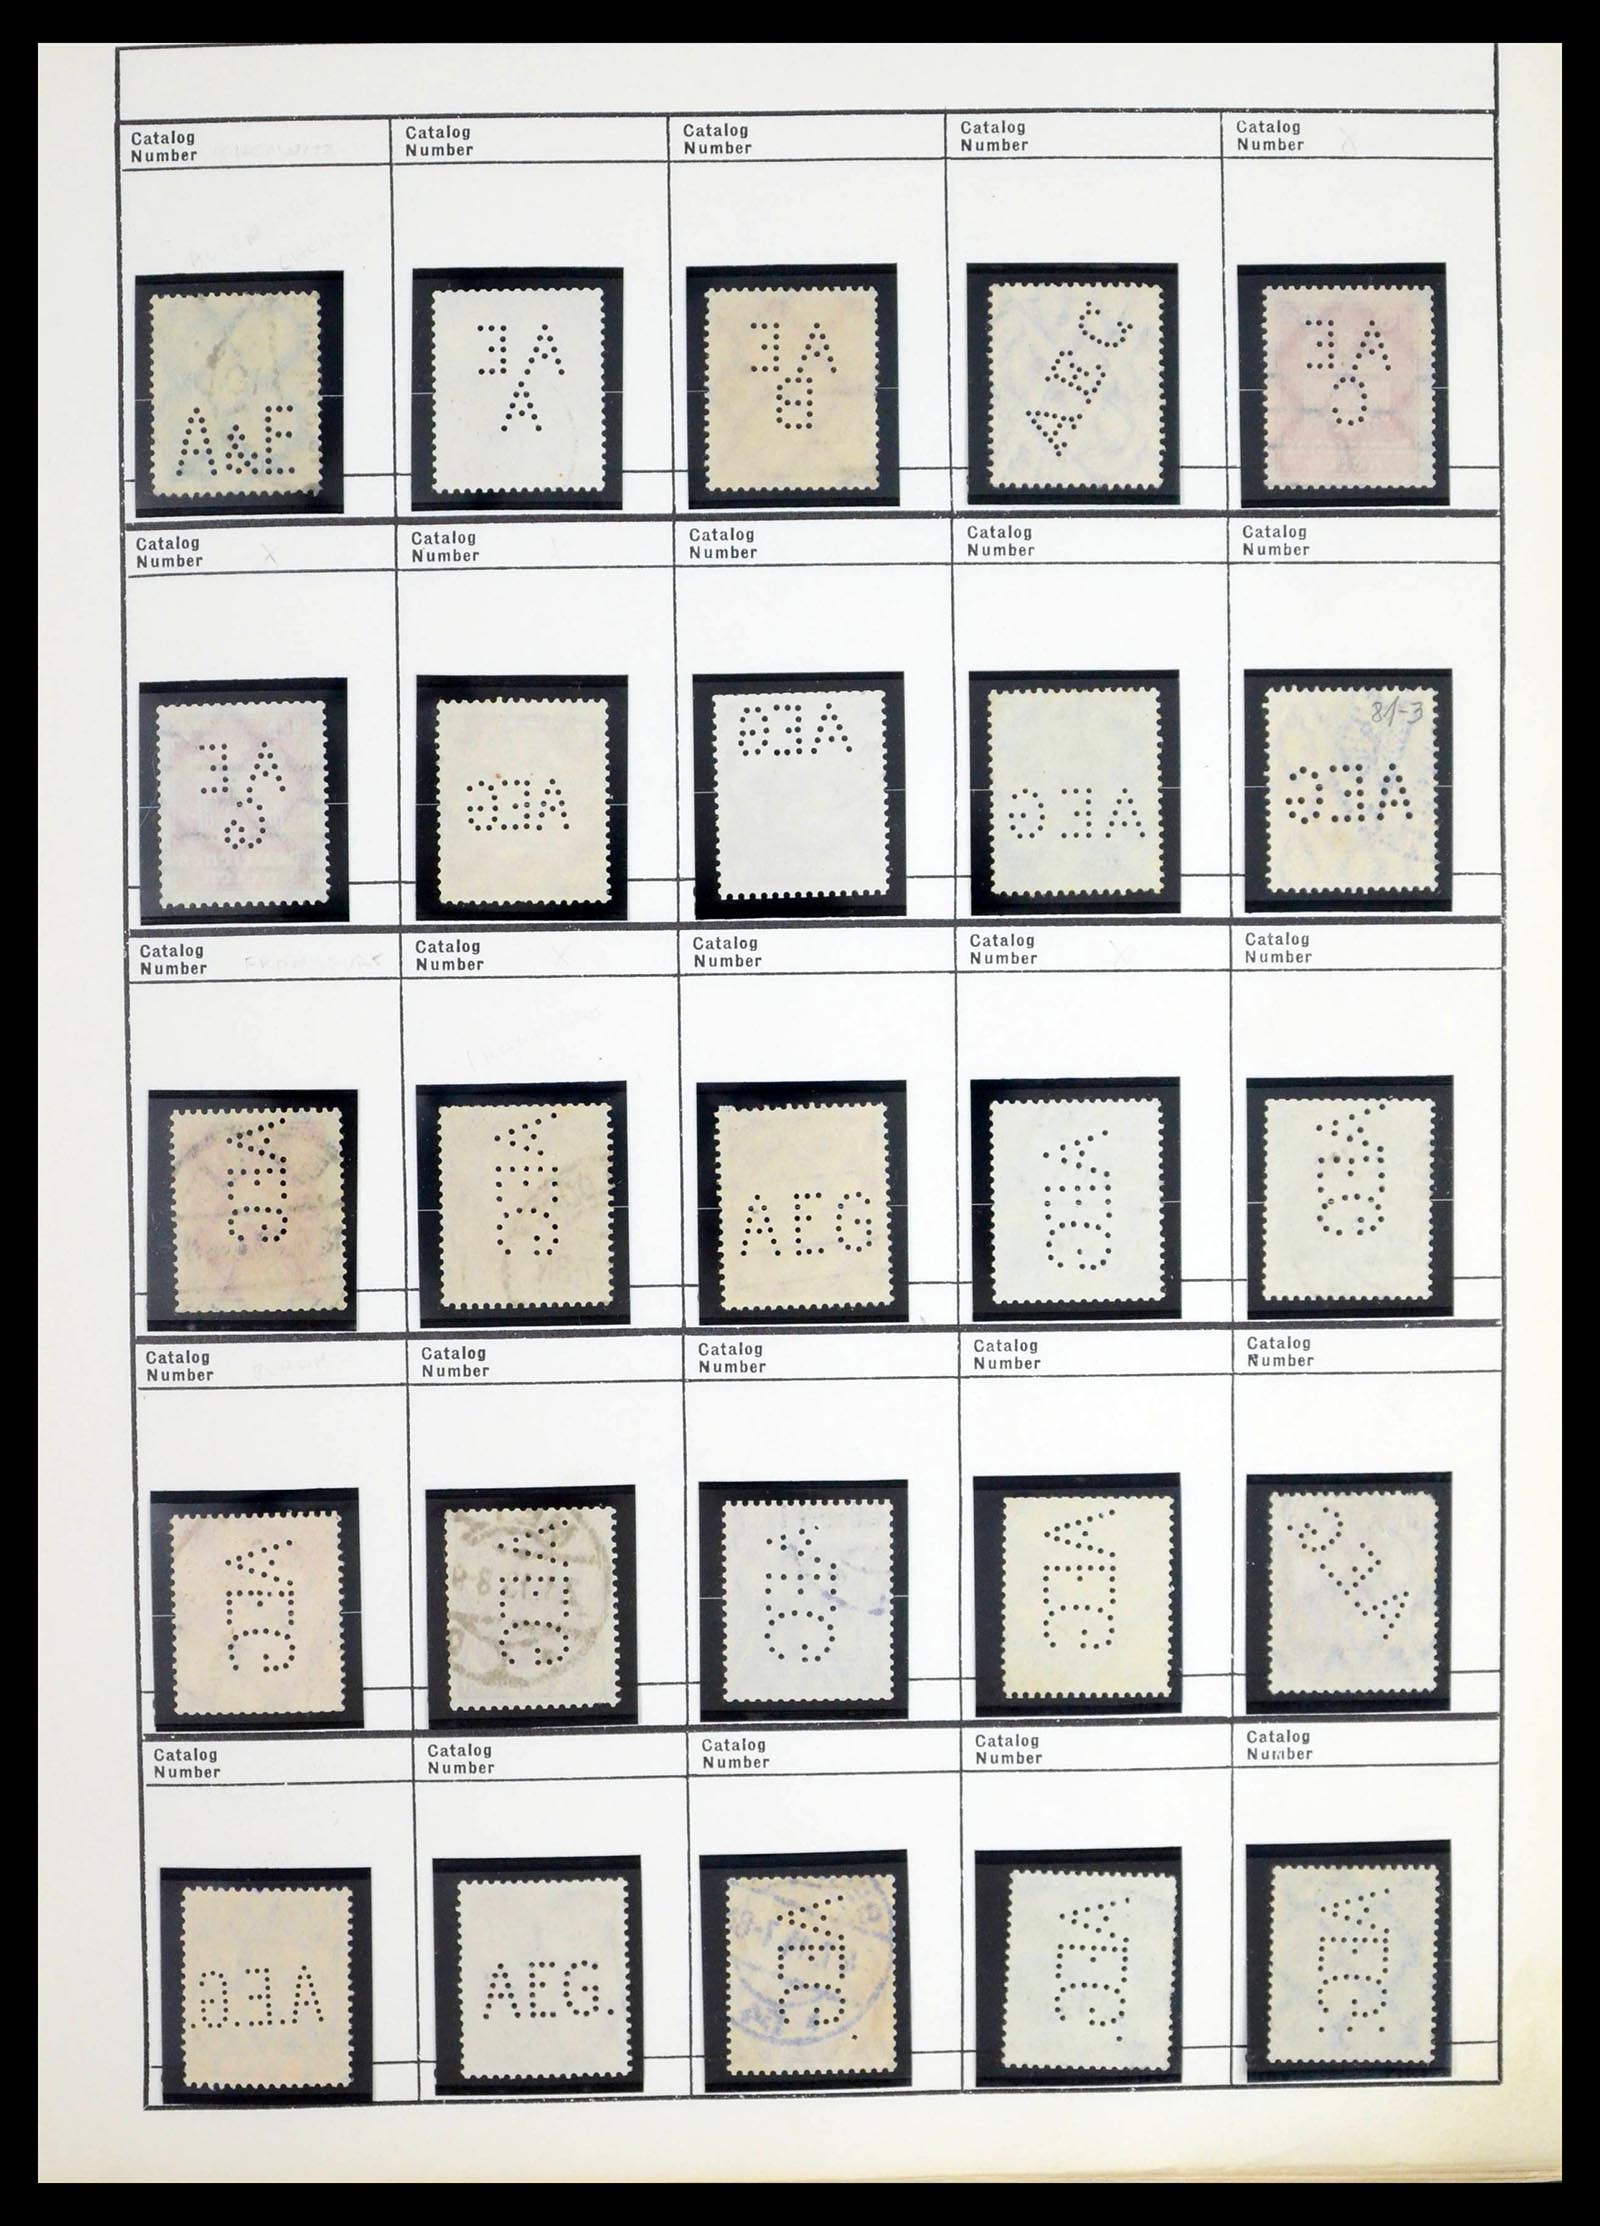 Catalog Number
Catalog Number
Catalog Number
Catalog Number
Catalog Number
A&E
AE
A
AE
B
AEC
AE
C
Catalog Number
Catalog Number
Catalog Number
Catalog Number
Catalog Number
AE
G
AEG
AEG
AEG
81-3
AEG
Catalog Number
Catalog Number
Catalog Number
Catalog Number
Catalog Number
AEG
AEG
AEG
AEG
AEG
Catalog Number
Catalog Number
Catalog Number
Catalog Number
Catalog Number
AEG
AEG
AEG
AEG
AEG
Catalog Number
Catalog Number
Catalog Number
Catalog Number
Catalog Number
A.E.G.
AEG.
AEG.
AEG.
AEG.